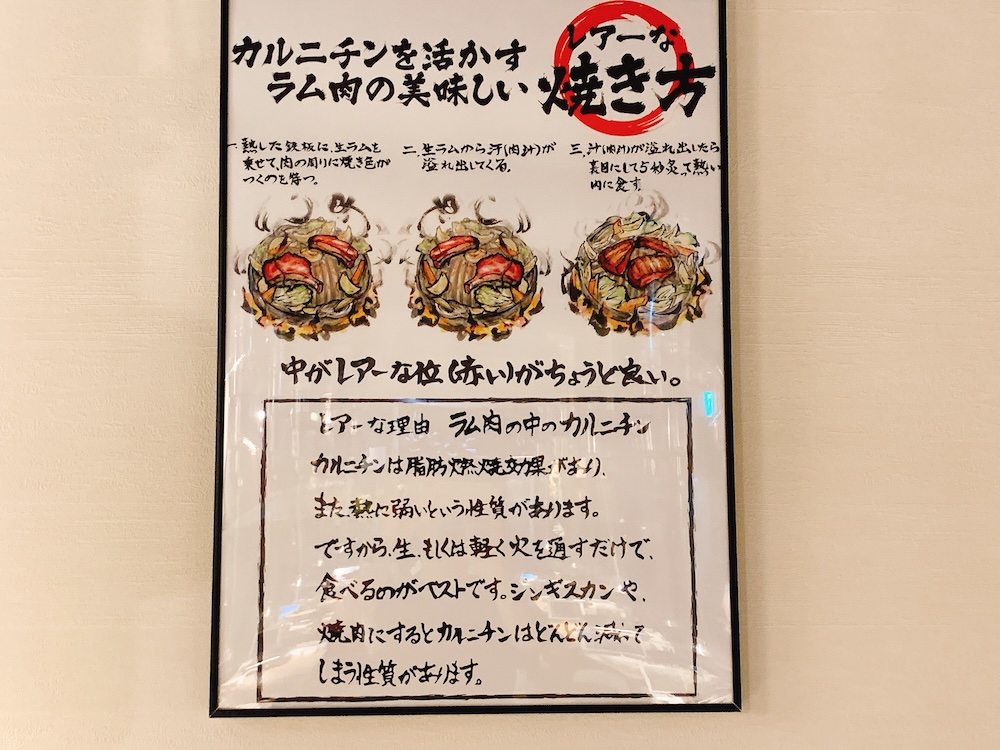 カルニチンを活かす
ラム肉の美味しい
レアーな
焼き方
一、熱した鉄板に、生ラムを
乗せて、肉の周りに焼き色が
つくのを待つ。
二、生ラムから汗(肉汁)が
溢れ出してくる。
三、汁(肉汁)が溢れ出したら
裏目にして5秒炙って熱い
内に食す
中がレアーな位(赤い)がちょうど良い。
レアーな理由 ラム肉の中のカルニチン
カルニチンは脂肪燃焼効果があり、
また、熱に弱いという性質があります。
ですから、生、もしくは軽く火を通すだけで、
食べるのがベストです。ジンギスカンや、
焼肉にするとカルニチンはどんどん減って
しまう性質があります。